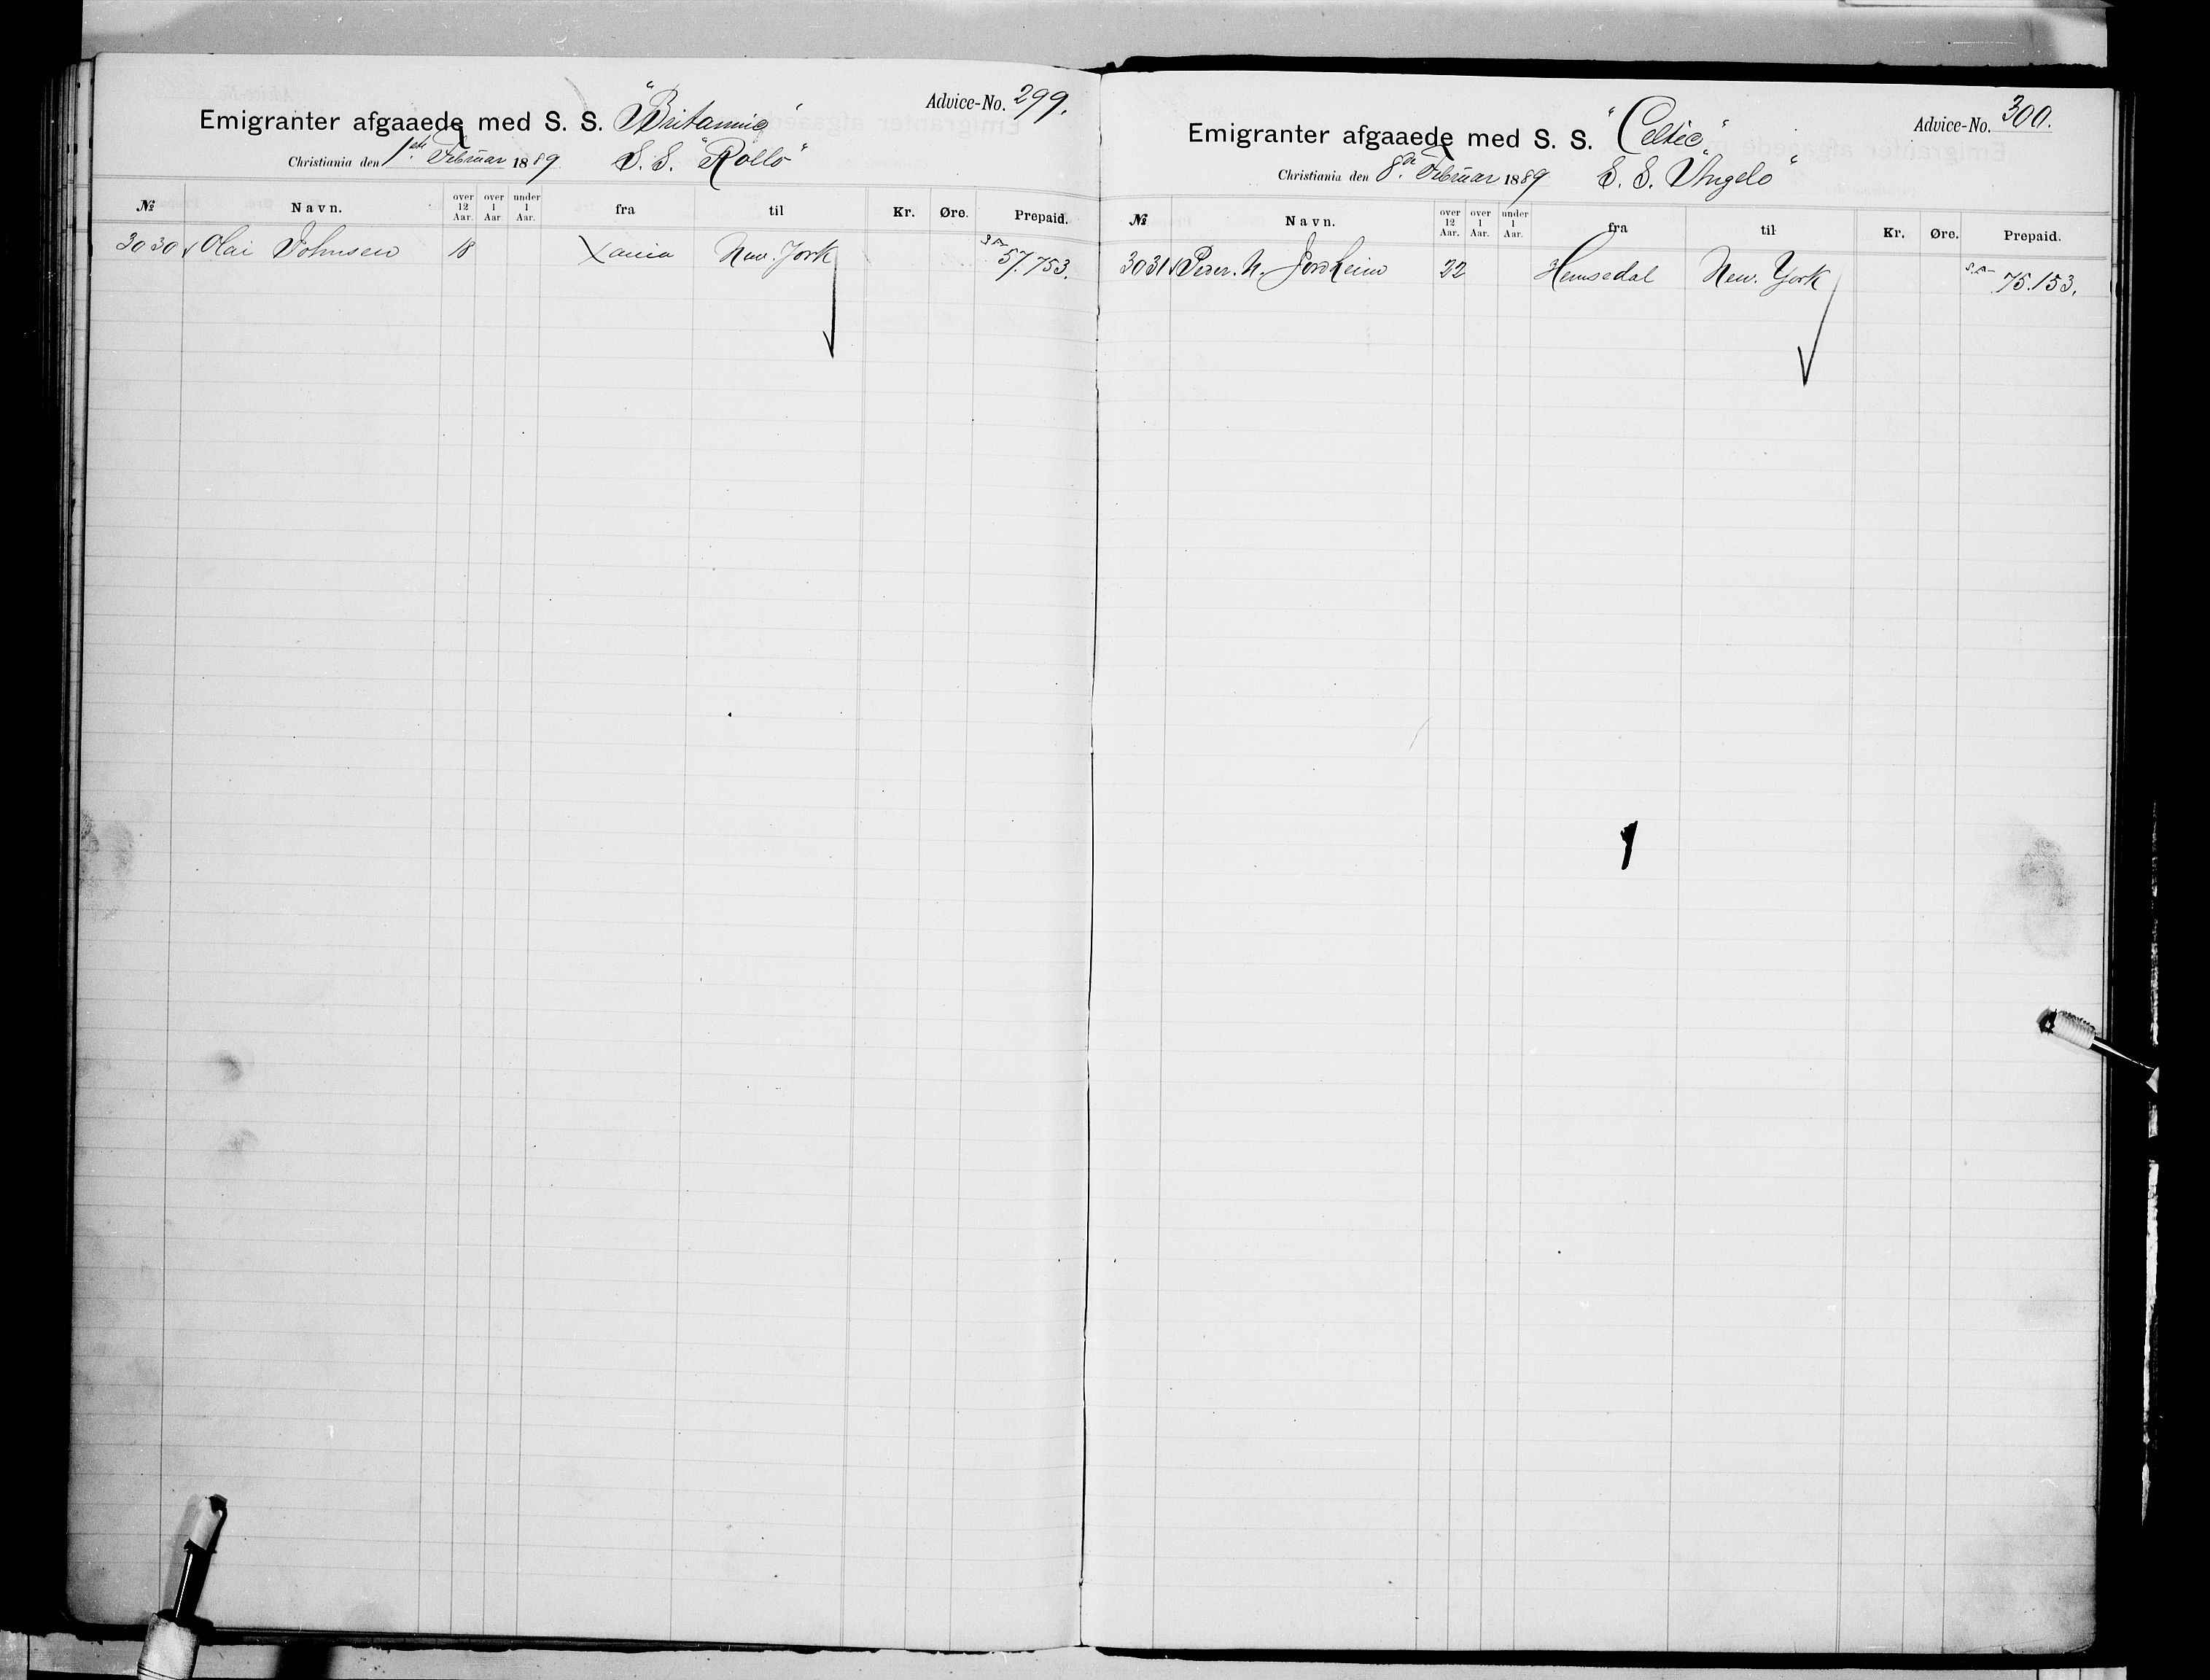 Advice-No. 299.
Emigranter afgaaede med S. S. "Britannic"
Christiania den 1ste Februar 1889 S. S. "Rollo"
№ Navn. over 12 Aar. over 1 Aar. under 1 Aar. fra til Kr. Øre. Prepaid.
3030 Olai Johnsen 18 Xania New. York 57.753.
Advice-No. 300.
Emigranter afgaaede med S. S. "Celtic"
Christiania den 8de Februar 1889 S. S. "Angelo"
№ Navn. over 12 Aar. over 1 Aar. under 1 Aar. fra til Kr. Øre. Prepaid.
3031 Peder. N. Jordheim 22 Hemsedal New. York 75.153.